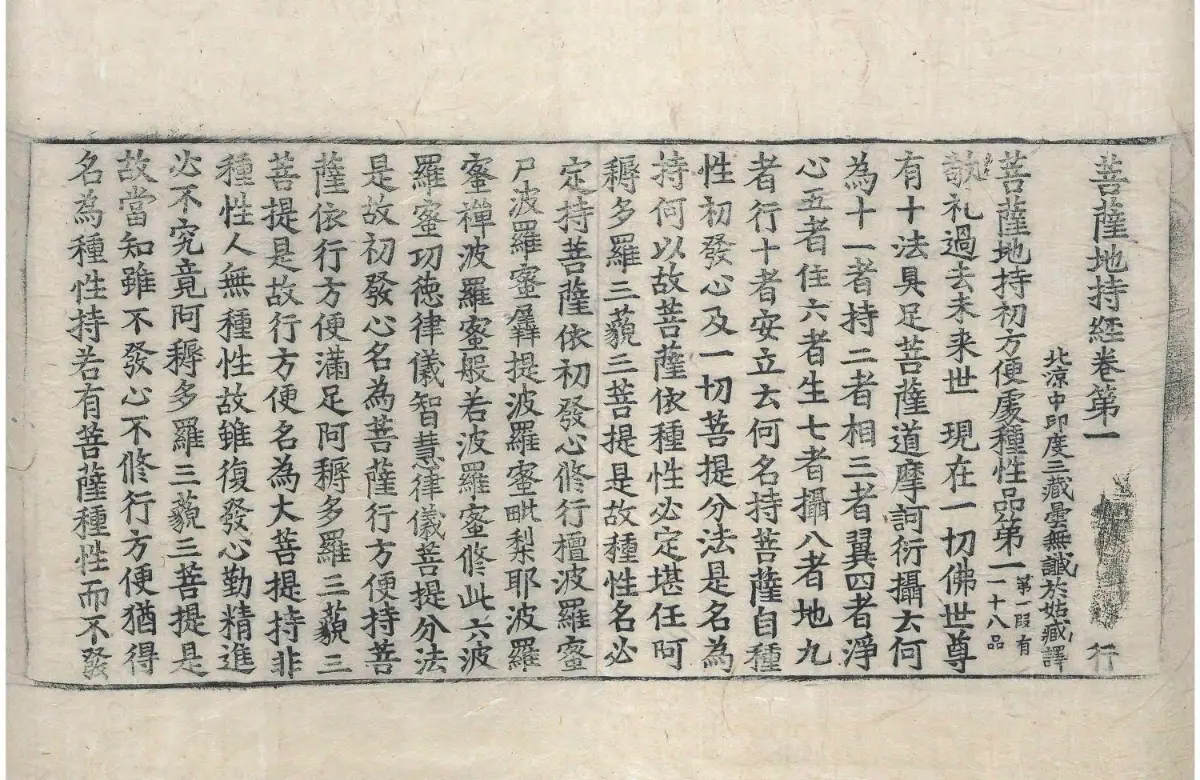 菩薩地持經卷第一 行
北涼中印度三藏曇無讖於姑臧譯
菩薩地持初方便處種性品第一 第一段有一十八品
敬礼過去未来世 現在一切佛世尊
有十法具足菩薩道摩訶衍攝云何
為十一者持二者相三者翼四者淨
心五者住六者生七者攝八者地九
者行十者安立云何名持菩薩自種
性初發心及一切菩提分法是名為
持何以故菩薩依種性必定堪任阿
耨多羅三藐三菩提是故種性名必
定持菩薩依初發心修行檀波羅蜜
尸波羅蜜羼提波羅蜜毗梨耶波羅
蜜禪波羅蜜般若波羅蜜修此六波
羅蜜功徳律儀智慧律儀菩提分法
是故初發心名為菩薩行方便持菩
薩依行方便滿足阿耨多羅三藐三
菩提是故行方便名為大菩提持非
種性人無種性故雖復發心勤精進
必不究竟阿耨多羅三藐三菩提是
故當知雖不發心不修行方便猶得
名為種性持若有菩薩種性而不發